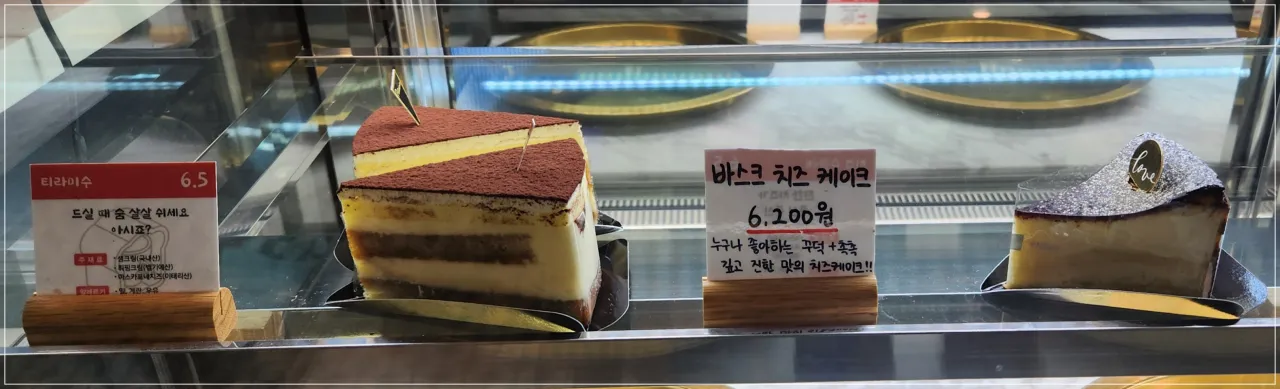 티라미수 6.5
드실 때 숨 살살 쉬세요
아시죠?
주재료
• 생크림(국내산)
• 휘핑크림(벨기에산)
• 마스카포네치즈(이태리산)
알레르기 • 밀, 계란, 우유
바스크 치즈 케이크
6,200원
누구나 좋아하는 꾸덕+촉촉
깊고 진한 맛의 치즈케이크!!
love